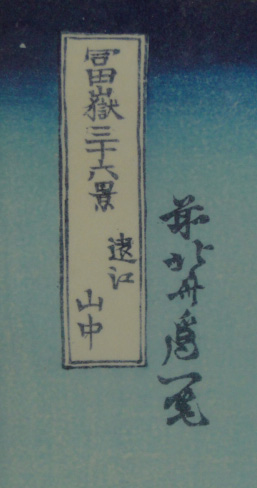 冨嶽三十六景
遠江
山中
前北斎為一筆